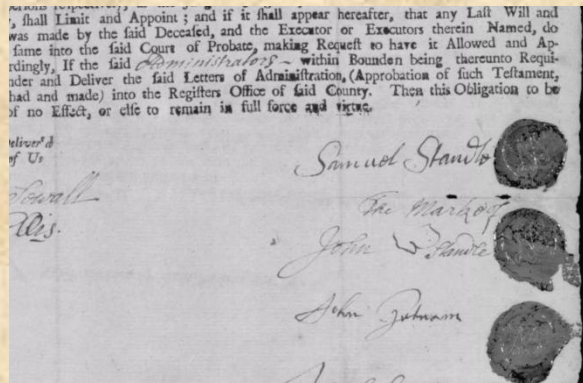 , shall Limit and Appoint ; and if it shall appear hereafter, that any Last Will and
was made by the said Deceased, and the Executor or Executors therein Named, do
same into the said Court of Probate, making Request to have it Allowed and Ap-
rdingly, If the said Administrators within Bounden being thereunto Requi-
nder and Deliver the said Letters of Administration, (Approbation of such Testament,
had and made) into the Registers Office of said County. Then this Obligation to be
of no Effect, or else to remain in full force and virtue.
eliver'd
of Us
Samuel Standle
Sowall
The Mark of
llis.
John Standle
John Putnam